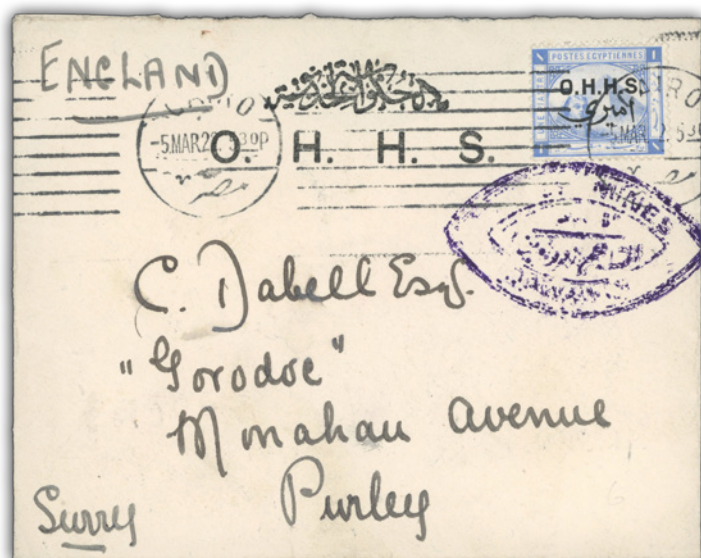 ENGLAND
CAIRO
-5MAR22 530P
مصر
O. H. H. S.
POSTES EGYPTIENNES
O.H.H.S.
أميري
-5MAR
MINES
C. Dabell Esq.
"Gorodoc"
Monahan Avenue
Purley
Surry